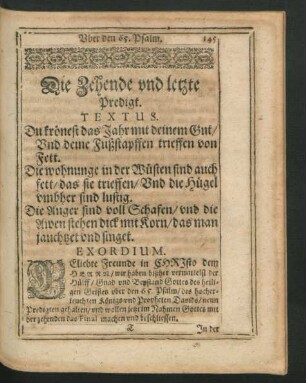 Vber den 65. Psalm. 145
Die Zehende vnd letzte
Predigt.
TEXTUS.
Du krönest das Jahr mit deinem Gut/
Vnd deine Fußstapffen trieffen von
Fett.
Die wohnunge in der Wüsten sind auch
fett/ das sie trieffen/ Vnd die Hügel
vmbher sind lustig.
Die Anger sind voll Schafen/ vnd die
Awen stehen dick mit Korn/ das man
jauchtzet vnd singet.
EXORDIUM.
GEliebte Freunde in CHRJsto dem
HERRN/ wir haben bißher vermittelst der
Hülff/ Gnad vnd Beystand Gottes des heili-
gen Geistes vber den 65. Psalm/ des hocher-
leuchten Königs vnd Propheten Davids/ neun
Predigten gehalten/ vnd wollen jetzt im Nahmen Gottes mit
der zehenden das Final machen vnd beschliessen.
In der